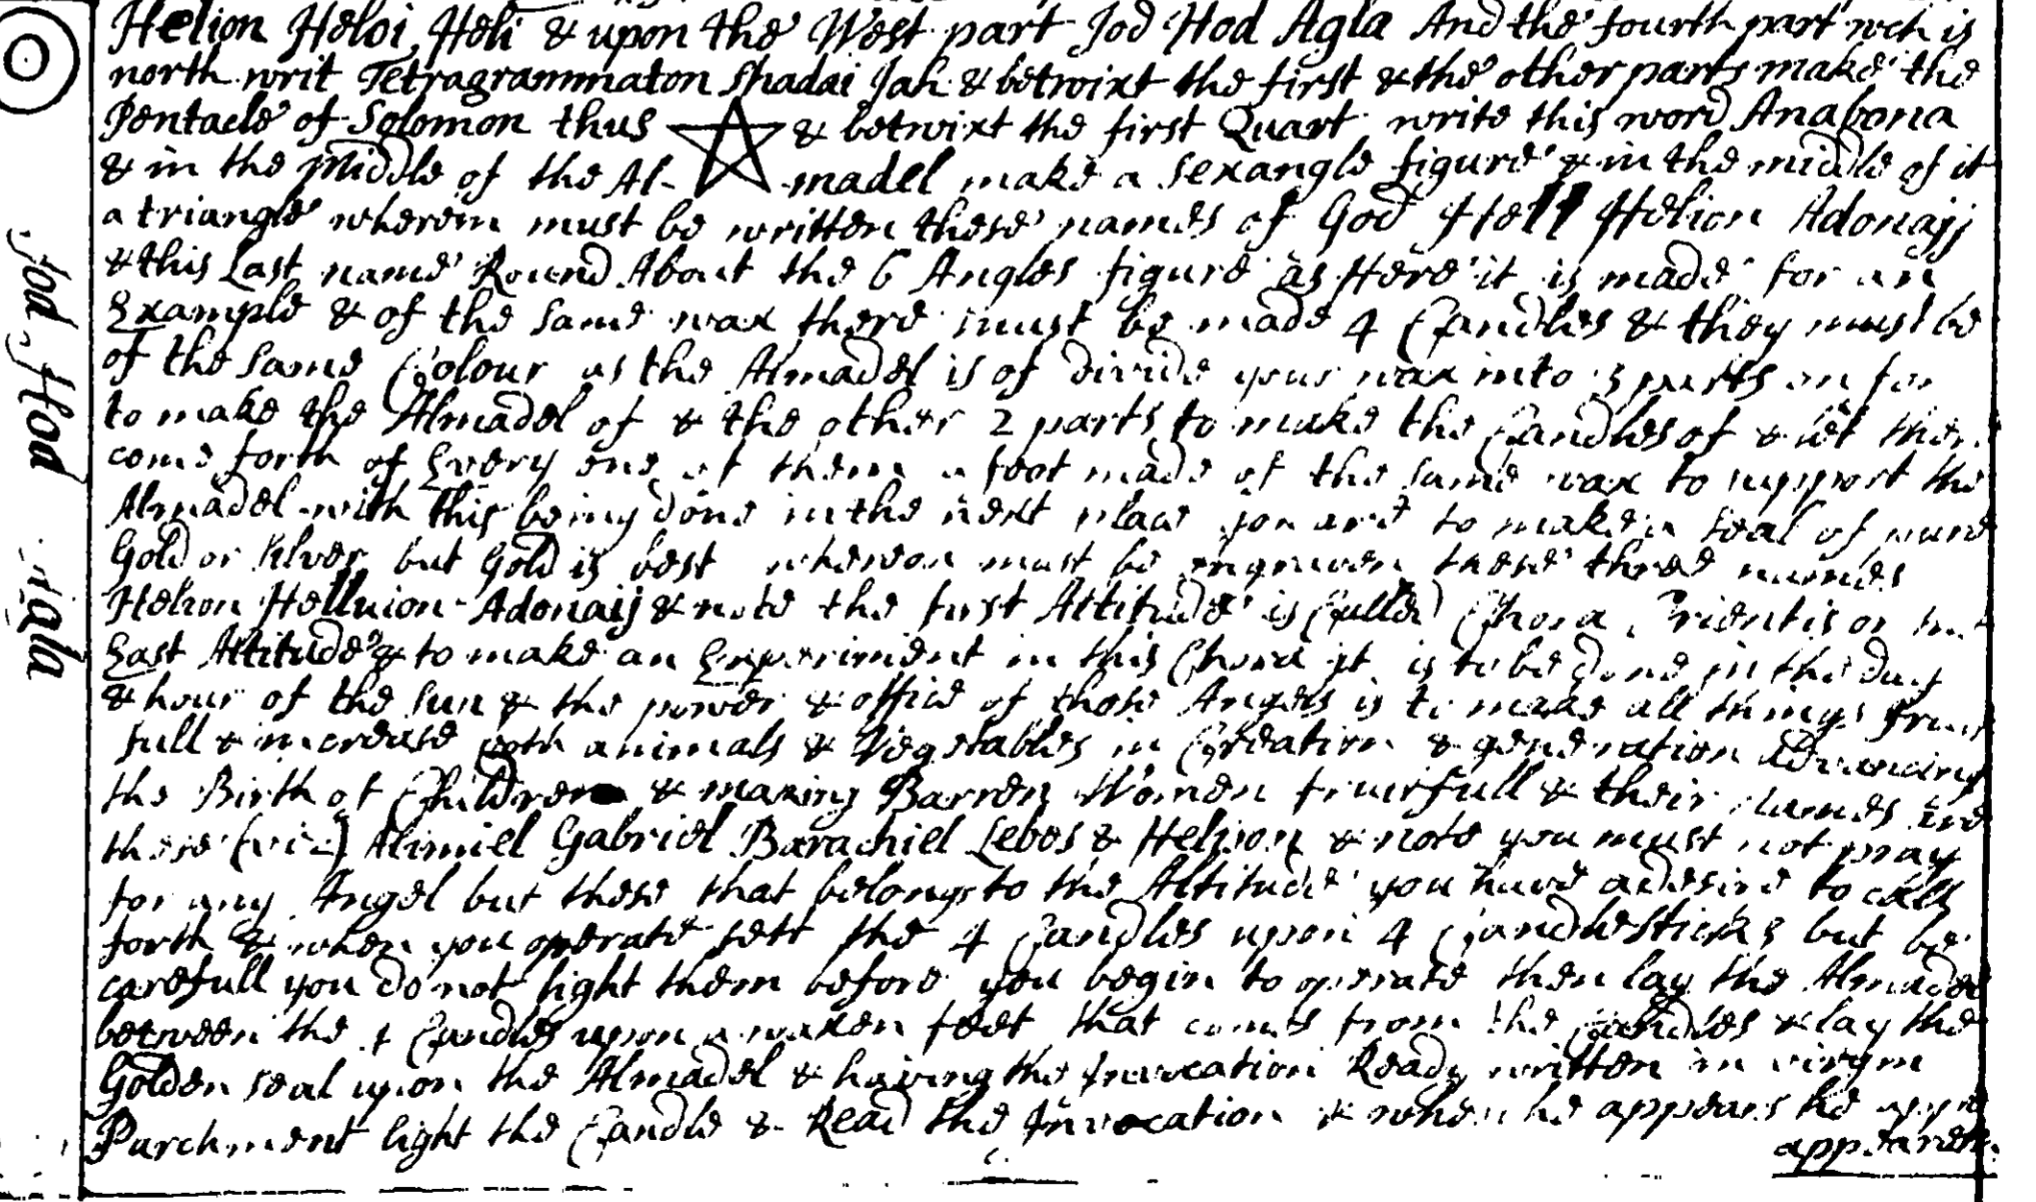 Helion Heloi, Heli & upon the West part Jod Hod Agla And the fourth part wch is
north writ Tetragrammaton Shadai Jah & betwixt the first & the other parts make the
Pentacle of Solomon thus & betwixt the first Quart write this word Anabona
& in the middle of the Al- madel make a Sexangle figure & in the middle of it
a triangle wherein must be written these names of God Hell Helion Adonaij
& this Last name Round About the 6 Angles figure as Here it is made for an
Example & of the same wax there must be made 4 Candles & they must be
of the same Colour as the Almadel is of divide your wax into 3 parts on for
to make the Almadel of & the other 2 parts to make the Candles of & let there
come forth of Every one of them a foot made of the same wax to support the
Almadel with this being done in the next place you are to make a seal of pure
Gold or silver but Gold is best whereon must be engraven these three names
Helion Helluion Adonaij & note the first Altitude is Called Chora Orientis or the
East Altitude & to make an Experiment in this Chora it is to be done in the day
& hour of the sun & the power & office of those Angels is to make all things fruit
full & increase both animals & Vegetables in Creation & generation Advancing
the Birth of Children & making Barren Women fruitfull & their names are
these (viz) Alimiel Gabriel Barachiel Lebos & Helison & note you must not pray
for any Angel but those that belongs to the Altitude you have a desire to call
forth & when you operate sett the 4 Candles upon 4 Candlesticks but be
carefull you do not light them before you begin to operate then lay the Almadel
between the 4 Candles upon a waxen feet that comes from the Candles & lay the
Golden seal upon the Almadel & having the Invocation Ready written in virgin
Parchment light the Candle & Read the Invocation & when he appears he
appeareth
Jod Hod Agla